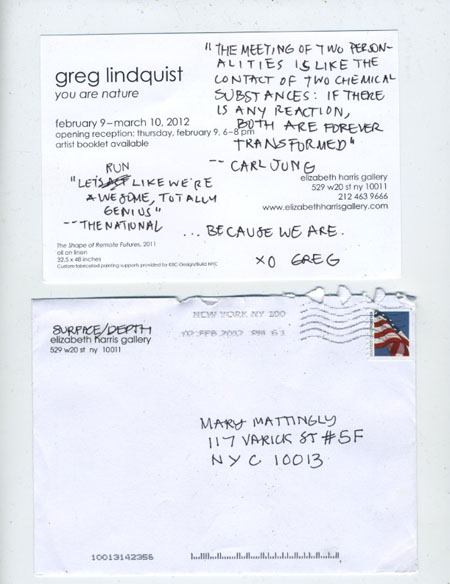 "THE MEETING OF TWO PERSON-
ALITIES IS LIKE THE
CONTACT OF TWO CHEMICAL
SUBSTANCES: IF THERE
IS ANY REACTION,
BOTH ARE FOREVER
TRANSFORMED"
-- CARL JUNG
greg lindquist
you are nature
february 9 – march 10, 2012
opening reception: thursday, february 9, 6–8 pm
artist booklet available
elizabeth harris gallery
529 w20 st ny 10011
212 463 9666
www.elizabethharrisgallery.com
RUN
"LET'S LIKE WE'RE
AWESOME, TOTALLY
GENIUS"
-- THE NATIONAL
... BECAUSE WE ARE.
XO GREG
The Shape of Remote Futures, 2011
oil on linen
32.5 x 48 inches
Custom fabricated painting supports provided by KBC-Design/Build NYC
SURFACE/DEPTH
elizabeth harris gallery
529 w20 st ny 10011
NEW YORK NY 100
MARY MATTINGLY
117 VARICK ST #5F
NYC 10013
10013142356